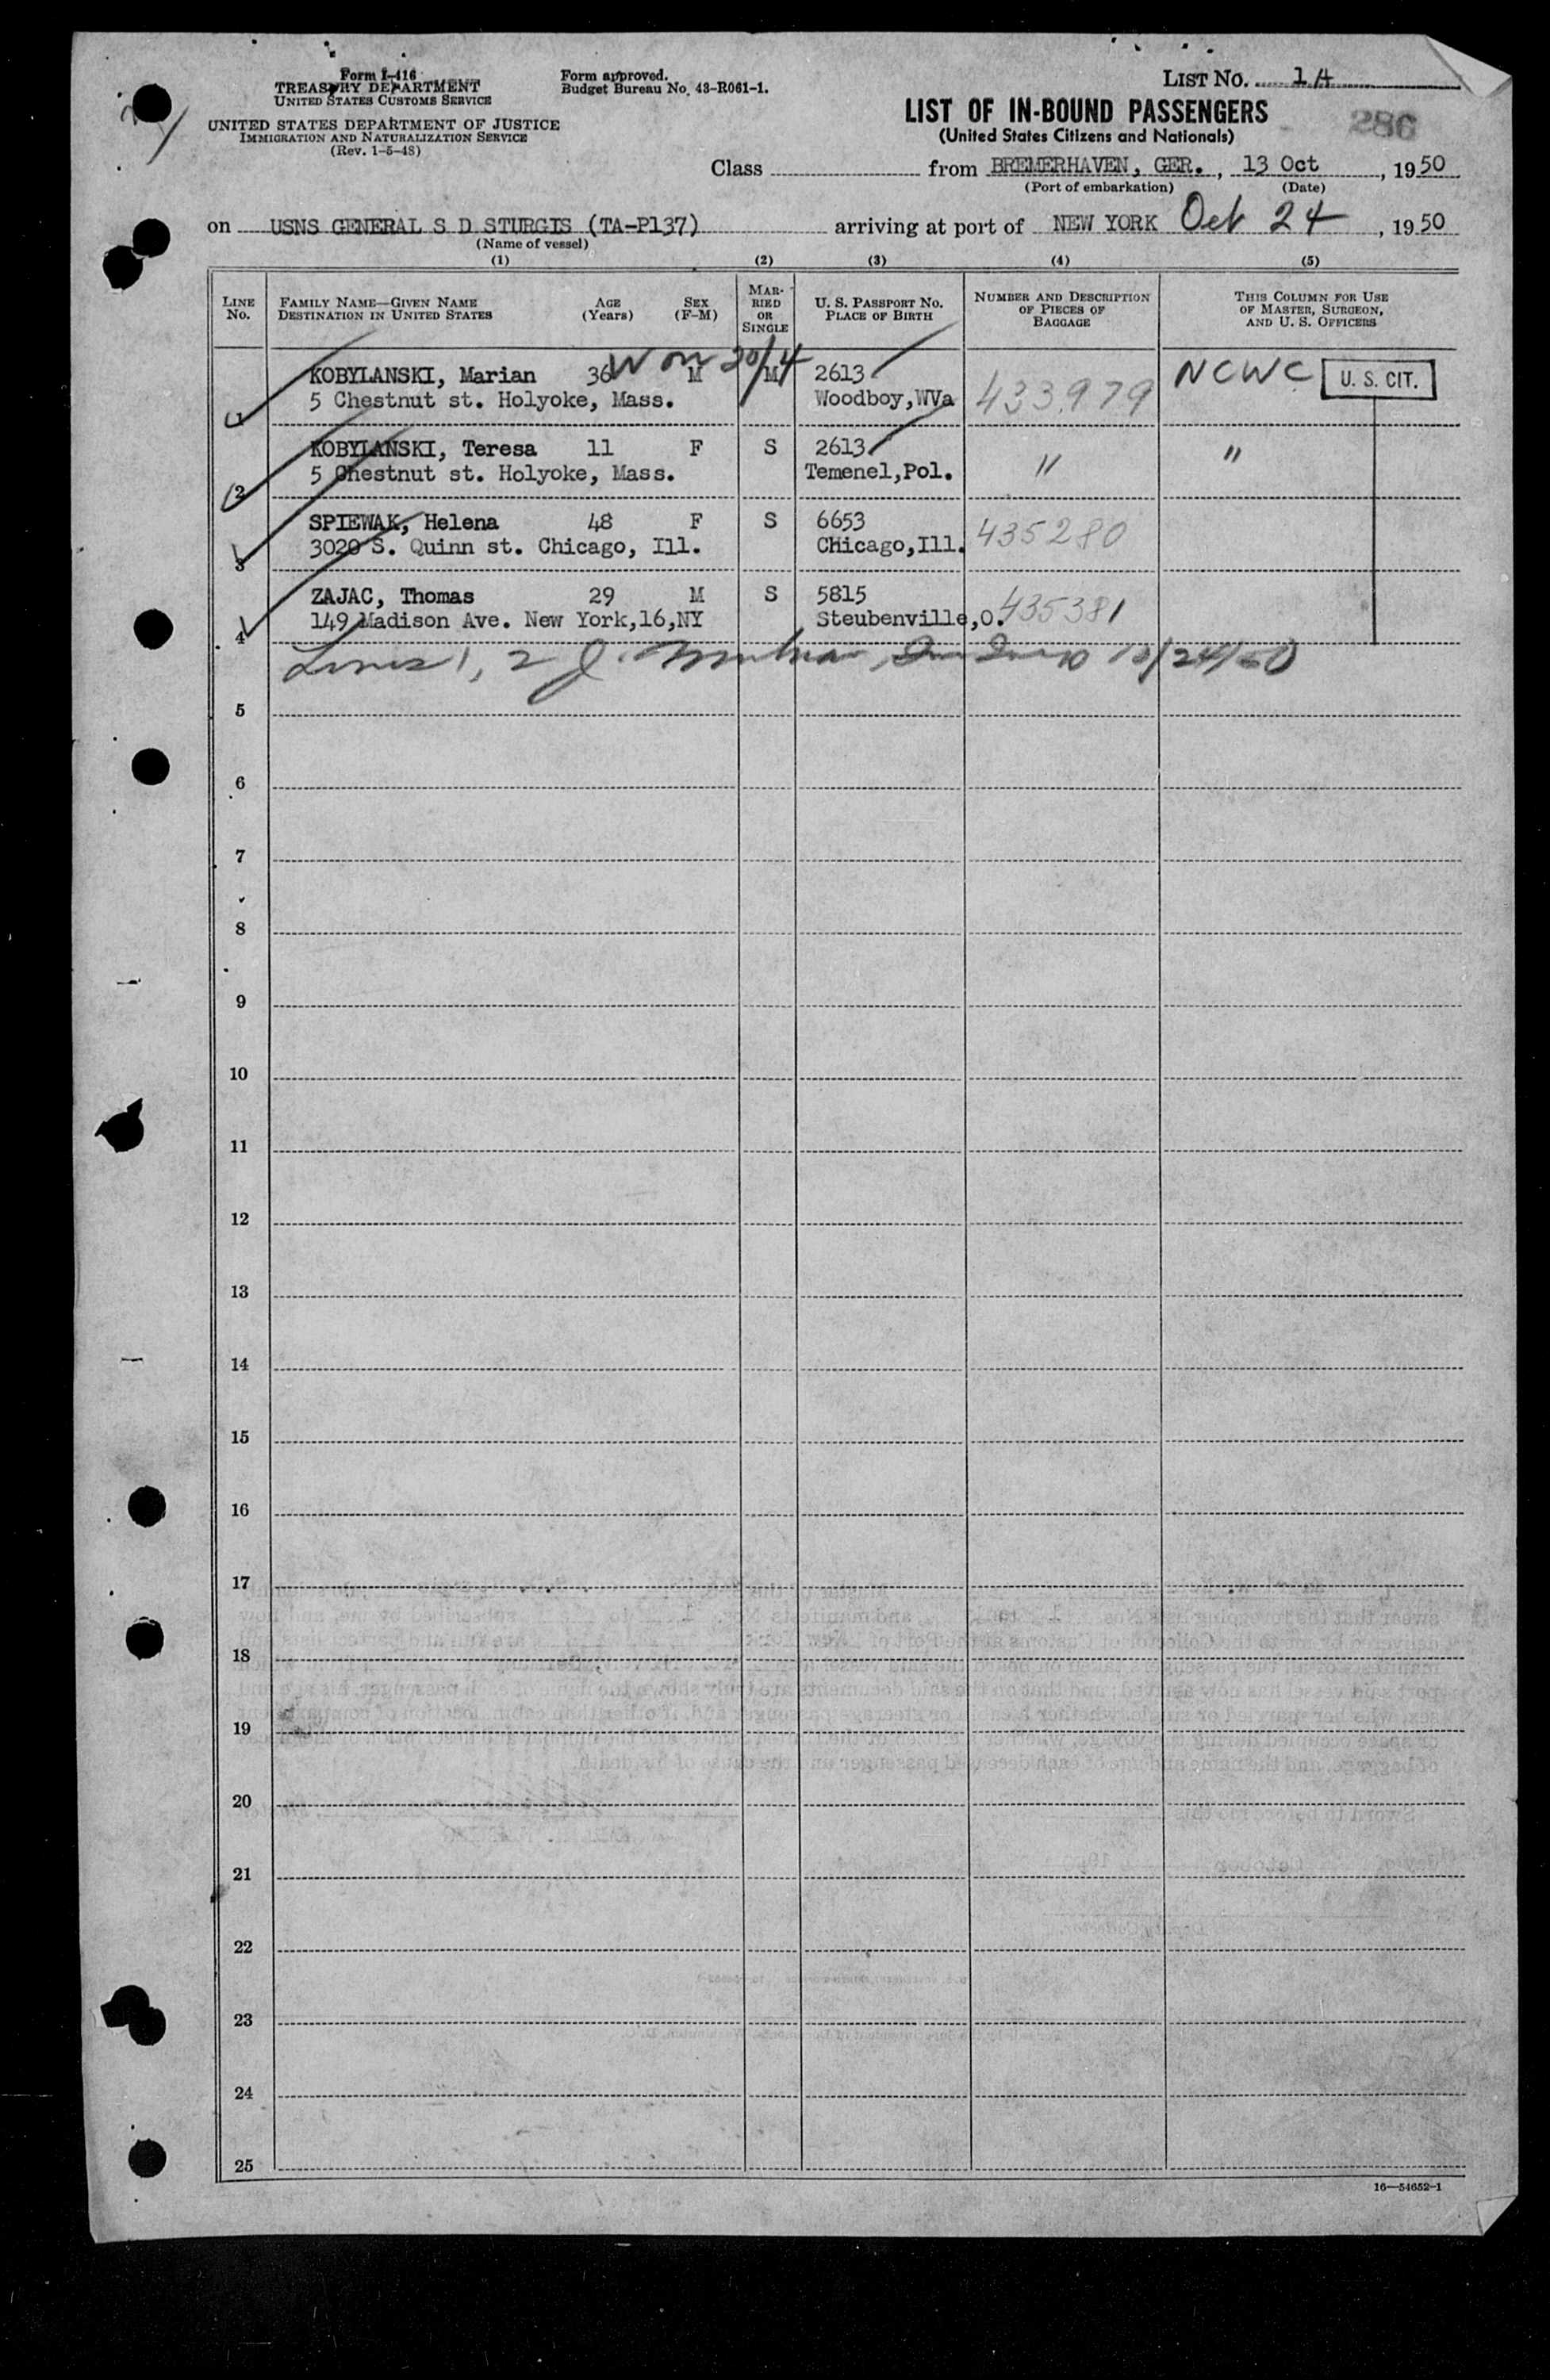 Form I-416
TREASURY DEPARTMENT
UNITED STATES CUSTOMS SERVICE
UNITED STATES DEPARTMENT OF JUSTICE
IMMIGRATION AND NATURALIZATION SERVICE
(Rev. 1-5-48)
Form approved.
Budget Bureau No. 43-R061-1.
LIST NO. 1A
LIST OF IN-BOUND PASSENGERS
(United States Citizens and Nationals)
286
Class from BREMERHAVEN, GER., 13 Oct, 1950
(Port of embarkation) (Date)
on USNS GENERAL S D STURGIS (TA-P137) arriving at port of NEW YORK Oct 24, 1950
(Name of vessel)
(1) (2) (3) (4) (5)
LINE NO.
FAMILY NAME—GIVEN NAME
DESTINATION IN UNITED STATES
AGE
(Years)
SEX
(F-M)
MARRIED OR SINGLE
U. S. PASSPORT NO.
PLACE OF BIRTH
NUMBER AND DESCRIPTION
OF PIECES OF
BAGGAGE
THIS COLUMN FOR USE
OF MASTER, SURGEON,
AND U. S. OFFICERS
1 KOBYLANSKI, Marian 36 M M 2613 433979 NCWC U. S. CIT.
5 Chestnut st. Holyoke, Mass. Woodboy,WVa
2 KOBYLANSKI, Teresa 11 F S 2613 " "
5 Chestnut st. Holyoke, Mass. Temenel,Pol.
3 SPIEWAK, Helena 48 F S 6653 435280
3020 S. Quinn st. Chicago, Ill. CHicago,Ill.
4 ZAJAC, Thomas 29 M S 5815 435381
149 Madison Ave. New York,16,NY Steubenville,O.
Lines 1, 2 J. 10/24/50
5
6
7
8
9
10
11
12
13
14
15
16
17
18
19
20
21
22
23
24
25
16—54652-1